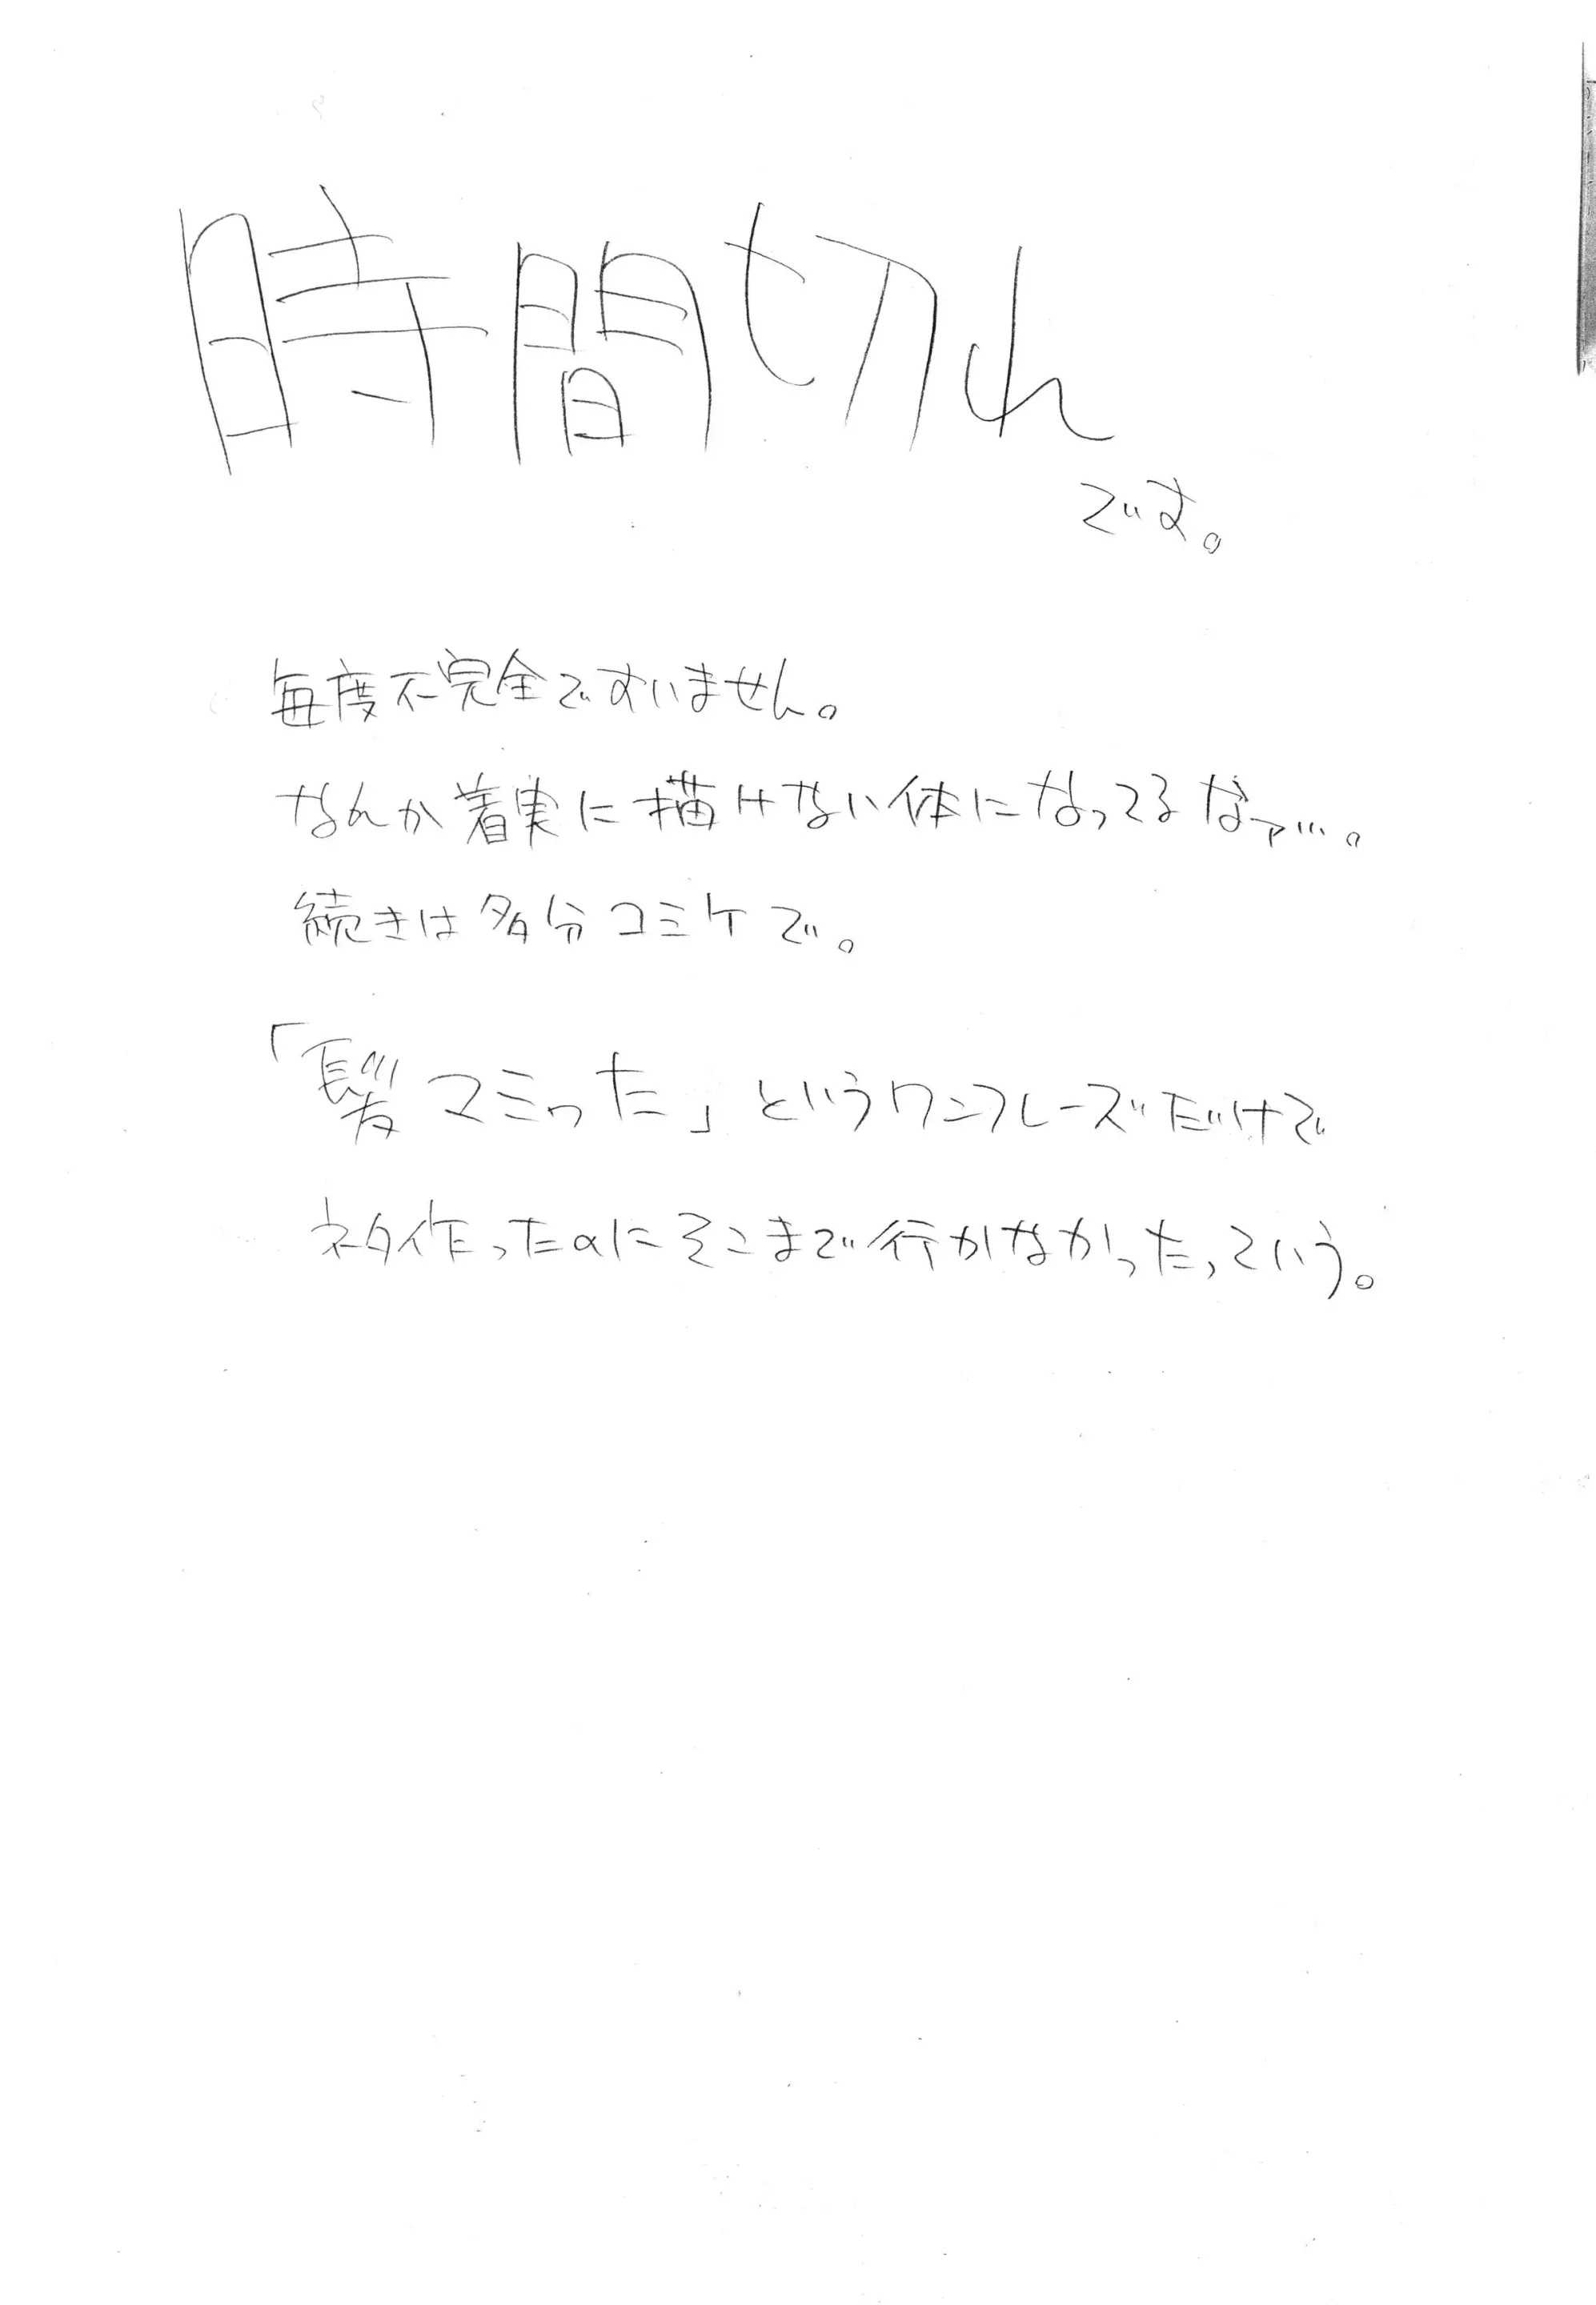 時間切れ
です。
毎度不完全ですいません。
なんか着実に描けない体になってるなァ…。
続きは多分コミケで。
「髪マミった」というワンフレーズだけで
ネタ作ったのにそこまで行かなかった、という。